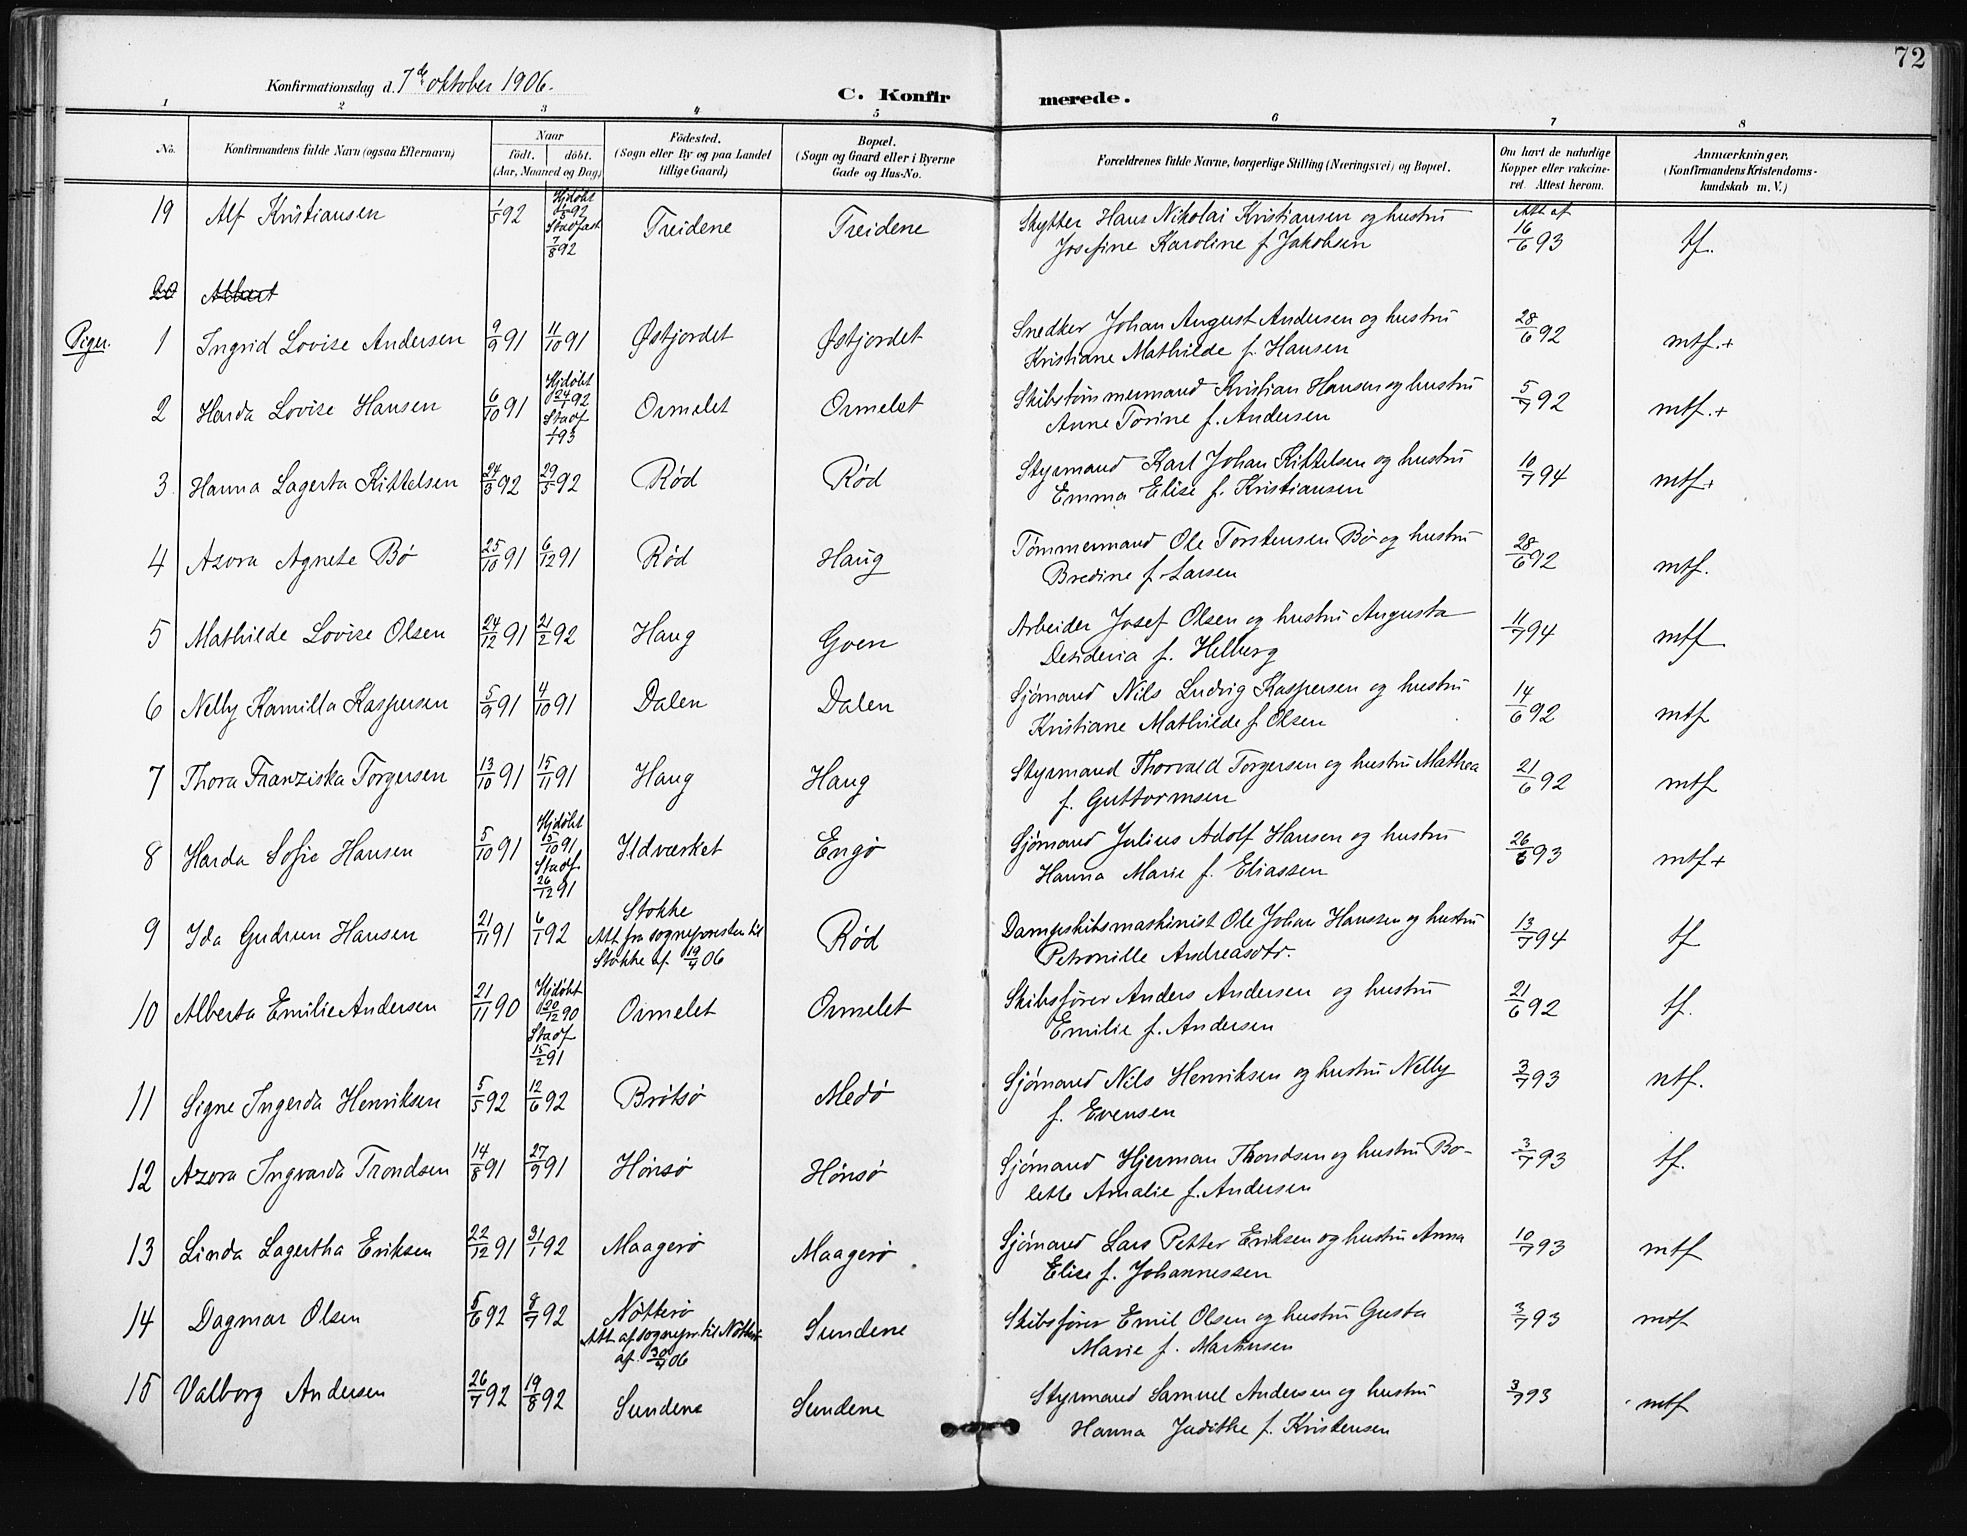 72
Konfirmationsdag d. 7de oktober 1906.
C. Konfirmerede.
1 2 3 4 5 6 7 8
No. Konfirmandens fulde Navn (ogsaa Efternavn) Naar født. døbt. (Aar, Maaned og Dag) Födested. (Sogn eller By og paa Landet tillige Gaard) Bopæl. (Sogn og Gaard eller i Byerne Gade og Hus-No. Forældrenes fulde Navne, borgerlige Stilling (Næringsvei) og Bopæl. Om havt de naturlige Kopper eller vakcineret. Attest herom. Anmærkninger. (Konfirmandens Kristendomskundskab m. V.)
19 Alf Kristiansen 1/5 92 Hjdøbt 1/5 92 Stadfæst 7/8 92 Treidene Treidene Skytter Hans Nikolai Kristiansen og hustru Att af 16/6 93 tf.
Josefine Karoline f. Jakobsen
20 Albert
Piger.
1 Ingrid Lovise Andersen 9/9 91 11/10 91 Østjordet Østjordet Snedker Johan August Andersen og hustru 28/6 92 mtf.+
Kristiane Mathilde f. Hansen
2 Harda Lovise Hansen 6/10 91 Hjdøbt 24/1 92 Stadf 1/1 93 Ormelet Ormelet Skibstømmermand Kristian Hansen og hustru 5/7 92 mtf.+
Anne Torine f. Andersen
3 Hanna Lagerta Kittelsen 24/3 92 29/5 92 Rød Rød Styrmand Karl Johan Kittelsen og hustru 10/7 94 mtf+
Emma Elise f. Kristiansen
4 Azora Agnete Bø 25/10 91 6/12 91 Rød Haug Tømmermand Ole Torstensen Bø og hustru 28/6 92 mtf.
Bredine f. Larsen
5 Mathilde Lovise Olsen 24/12 91 21/2 92 Haug Goen Arbeider Josef Olsen og hustru Augusta 11/7 94 mtf
Desideria f. Helberg
6 Nelly Kamilla Kaspersen 5/9 91 4/10 91 Dalen Dalen Sjømand Nils Ludvig Kaspersen og hustru 14/6 92 mtf
Kristiane Mathilde f. Olsen
7 Thora Franziska Torgersen 13/10 91 15/11 91 Haug Haug Styrmand Thorvald Torgersen og hustru Mathea 21/6 92 mtf
f. Guttormsen
8 Harda Sofie Hansen 5/10 91 Hjdøbt 15/10 91 Stadf 26/12 91 Ildværket Engø Sjømand Julius Adolf Hansen og hustru 26/6 93 mtf+
Hanna Marie f. Eliassen
9 Ida Gudrun Hansen 21/11 91 6/1 92 Stokke Att fra sognepresten til Stokke af 19/4 06 Rød Dampskibsmaskinist Ole Johan Hanssen og hustru 13/7 94 tf
Petronille Andreasdtr.
10 Alberta Emilie Andersen 21/11 90 Hjdøbt 20/12 90 Stadf 15/2 91 Ormelet Ormelet Skibsfører Anders Andersen og hustru 21/6 92 tf.
Emilie f. Andersen
11 Signe Ingerda Henriksen 5/5 92 12/6 92 Brøtsø Medø Sjømand Nils Henriksen og hustru Nelly 3/7 93 ntf.
f. Evensen
12 Azora Ingvarda Trondsen 14/8 91 27/9 91 Hønsø Hønsø Sjømand Hjerman Thondsen og hustru Bo- 3/7 93 tf.
lette Amalie f. Andersen
13 Linda Lagertha Eriksen 22/12 91 31/1 92 Maagerø Maagerø Sjømand Lars Petter Eriksen og hustru Anna 10/7 93 mtf
Elise f. Johannessen
14 Dagmar Olsen 5/6 92 8/7 92 Nøtterø Att af sognepr. til Nøtterø af 30/4 06 Sundene Skibsfører Emil Olsen og hustru Gusta 3/7 93 mtf
Marie f. Markusen
15 Valborg Andersen 26/7 92 19/8 92 Sundene Sundene Styrmand Samuel Andersen og hustru 3/7 93 mtf
Hanna Judithe f. Kristensen